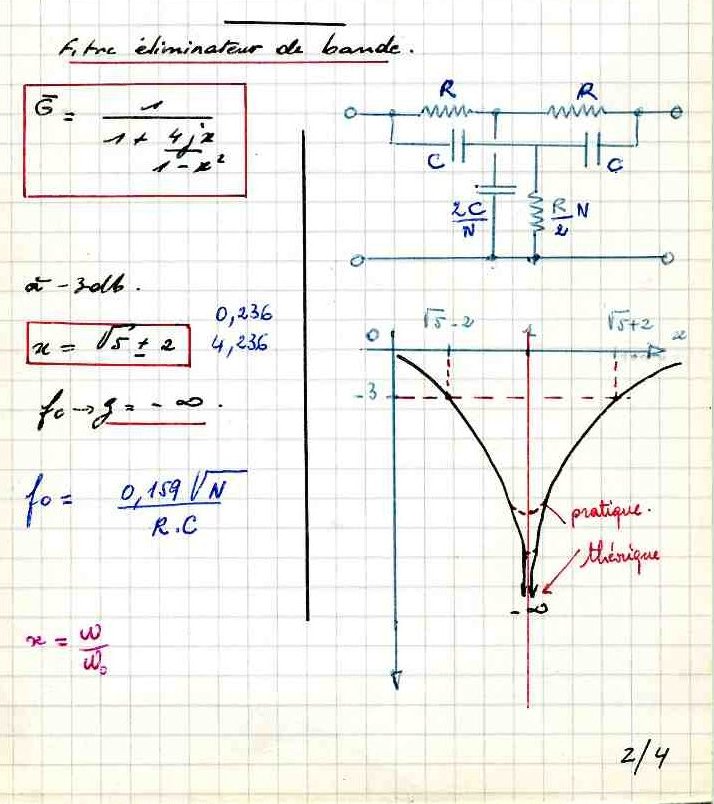 Filtre éliminateur de bande.
G̅ = 1 / (1 + 4jx / (1 - x²))
à -3db.
x = √5 ± 2
0,236
4,236
f₀ → g = - ∞.
f₀ = 0,159 √N / R.C
x = ω / ω₀
R R
C C
2C/N R/2 N
0 √5-2 1 √5+2 x
-3
pratique.
théorique
- ∞
2/4